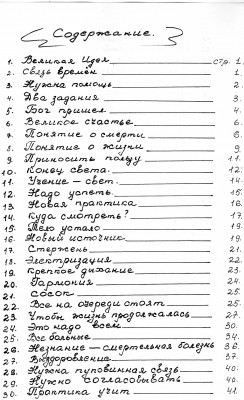 Содержание.
1. Великая Идея стр. 1.
2. Связь времён 1.
3. Нужна помощь 2.
4. Два задания 3.
5. Бог пришел 4.
6. Великое счастье 6.
7. Понятие о смерти 8.
8. Понятие о жизни 9.
9. Приносить пользу 11.
10. Конец света. 12.
11. Учение – свет. 14.
12. Надо успеть. 15.
13. Новая практика 16.
14. Куда смотреть? 17.
15. Тело устало 19.
16. Новый источник 19.
17. Стержень
18. Электризация 22.
19. Крепкое дыхание 23.
20. Гармония 24.
21. Сосок 25.
22. Все на очереди стоят 25.
23. Чтобы жизнь продолжалась 27.
24. Это надо всем 30.
25. Все больные 34.
26. Незнание – смертельная болезнь 36.
27. Выздоровление 37.
28. Нужна пуповинная связь. 40.
29. Нужно согласовывать 40.
30. Практика учит 41.